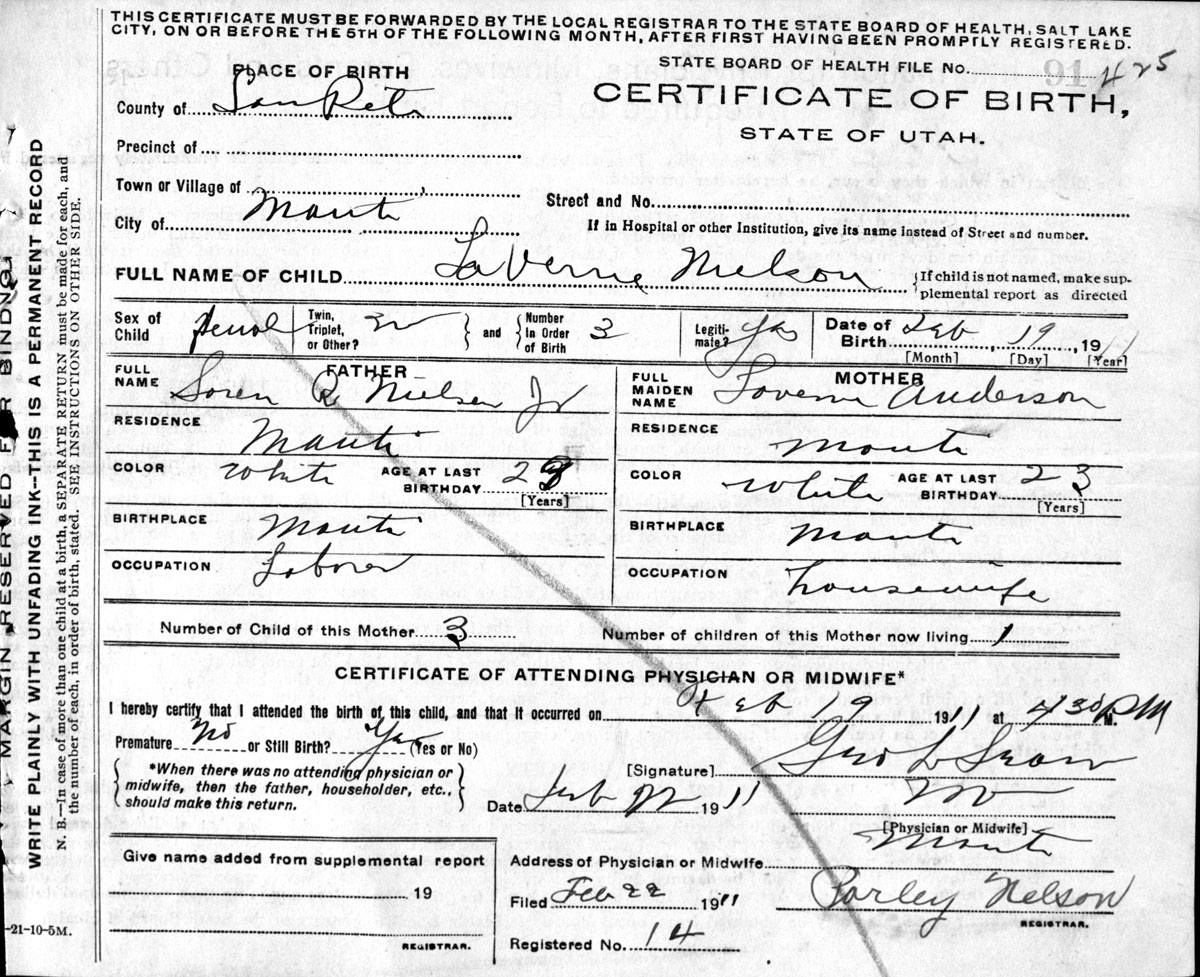 THIS CERTIFICATE MUST BE FORWARDED BY THE LOCAL REGISTRAR TO THE STATE BOARD OF HEALTH, SALT LAKE
CITY, ON OR BEFORE THE 5TH OF THE FOLLOWING MONTH, AFTER FIRST HAVING BEEN PROMPTLY REGISTERED.
STATE BOARD OF HEALTH FILE No. 425
PLACE OF BIRTH
CERTIFICATE OF BIRTH,
STATE OF UTAH.
County of SanPete
Precinct of
Town or Village of
City of Manti
Street and No.
If in Hospital or other Institution, give its name instead of Street and number.
FULL NAME OF CHILD LaVerne Nielson
{If child is not named, make sup-
plemental report as directed
Sex of Child
Twin, Triplet, or Other?
and
Number In Order of Birth 3
Legiti-mate? Yes
Date of Birth Feb 19, 191
[Month] [Day] [Year]
FATHER
FULL NAME Soren R Nielsen Jr
RESIDENCE Manti
COLOR White AGE AT LAST BIRTHDAY 23
[Years]
BIRTHPLACE Manti
OCCUPATION Laborer
MOTHER
FULL MAIDEN NAME Anderson
RESIDENCE Manti
COLOR White AGE AT LAST BIRTHDAY 23
[Years]
BIRTHPLACE Manti
OCCUPATION housewife
Number of Child of this Mother 3 Number of children of this Mother now living 1
CERTIFICATE OF ATTENDING PHYSICIAN OR MIDWIFE*
I hereby certify that I attended the birth of this child, and that it occurred on Feb 19 1911 at 430 P M M.
Premature No or Still Birth? Yes (Yes or No)
{*When there was no attending physician or
midwife, then the father, householder, etc.,
should make this return.}
[Signature] Geo L
Date 1911
[Physician or Midwife]
Give name added from supplemental report
19
REGISTRAR.
Address of Physician or Midwife Manti
Filed Feb 22 1911 Parley Nelson
REGISTRAR.
Registered No. 14
-21-10-5M.
MARGIN RESERVED FOR BINDING
WRITE PLAINLY WITH UNFADING INK--THIS IS A PERMANENT RECORD
N. B.—In case of more than one child at a birth, a SEPARATE RETURN must be made for each, and
the number of each, in order of birth, stated. SEE INSTRUCTIONS ON OTHER SIDE.